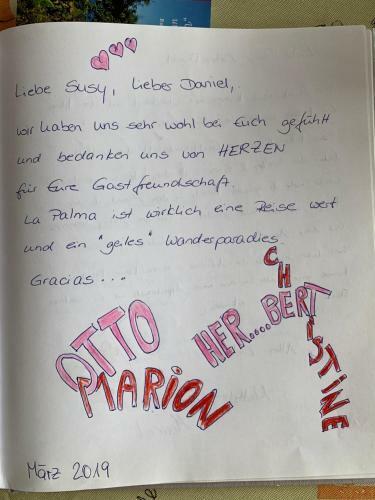 Liebe Susy, Lieber Daniel,
wir haben uns sehr wohl bei Euch gefühlt
und bedanken uns von HERZEN
für Eure Gastfreundschaft.
La Palma ist wirklich eine Reise wert
und ein "geiles" Wanderparadies.
Gracias...
OTTO
MARION
HER....BERT
CHRISTINE
März 2019